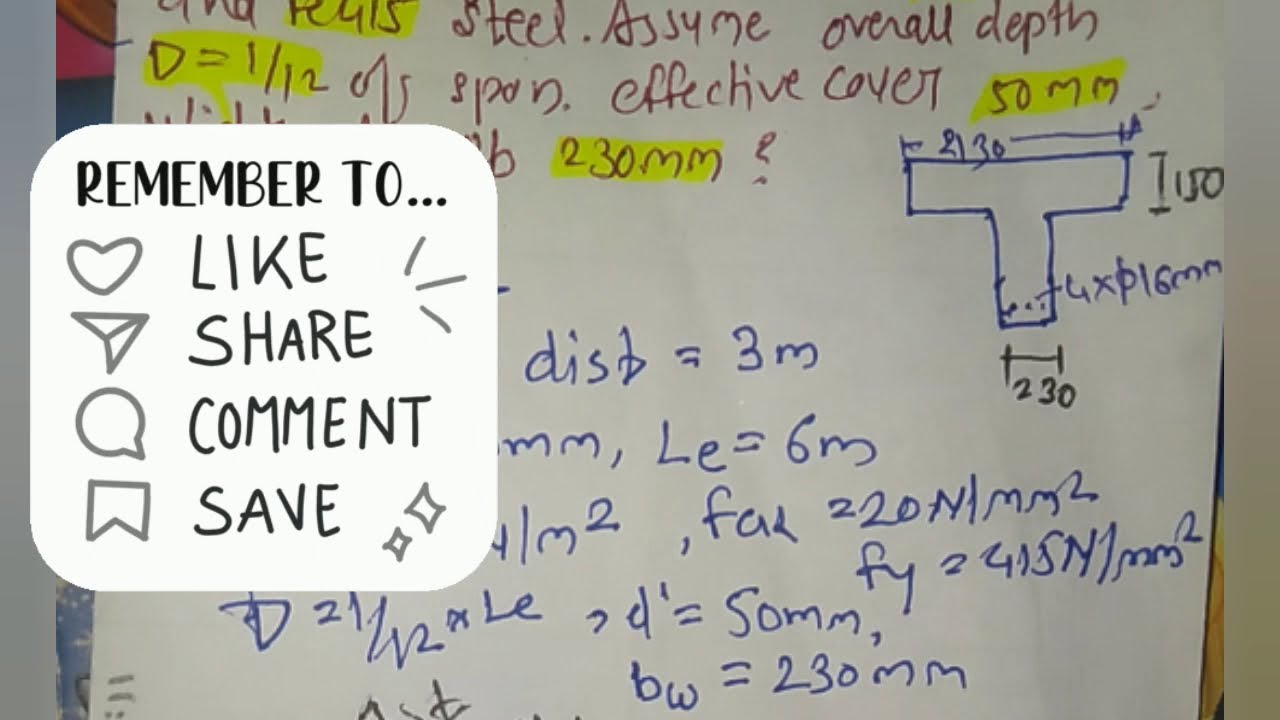 and Fe415 steel. Assume overall depth
D = 1/12 of span. effective cover 50mm.
230mm ?
2130
150
4xϕ16mm
230
REMEMBER TO...
LIKE
SHARE
COMMENT
SAVE
dist = 3m
mm, Le = 6m
N/m², fck = 20N/mm²
fy = 415N/mm²
D = 1/12 * Le, d' = 50mm,
bw = 230mm
Ast